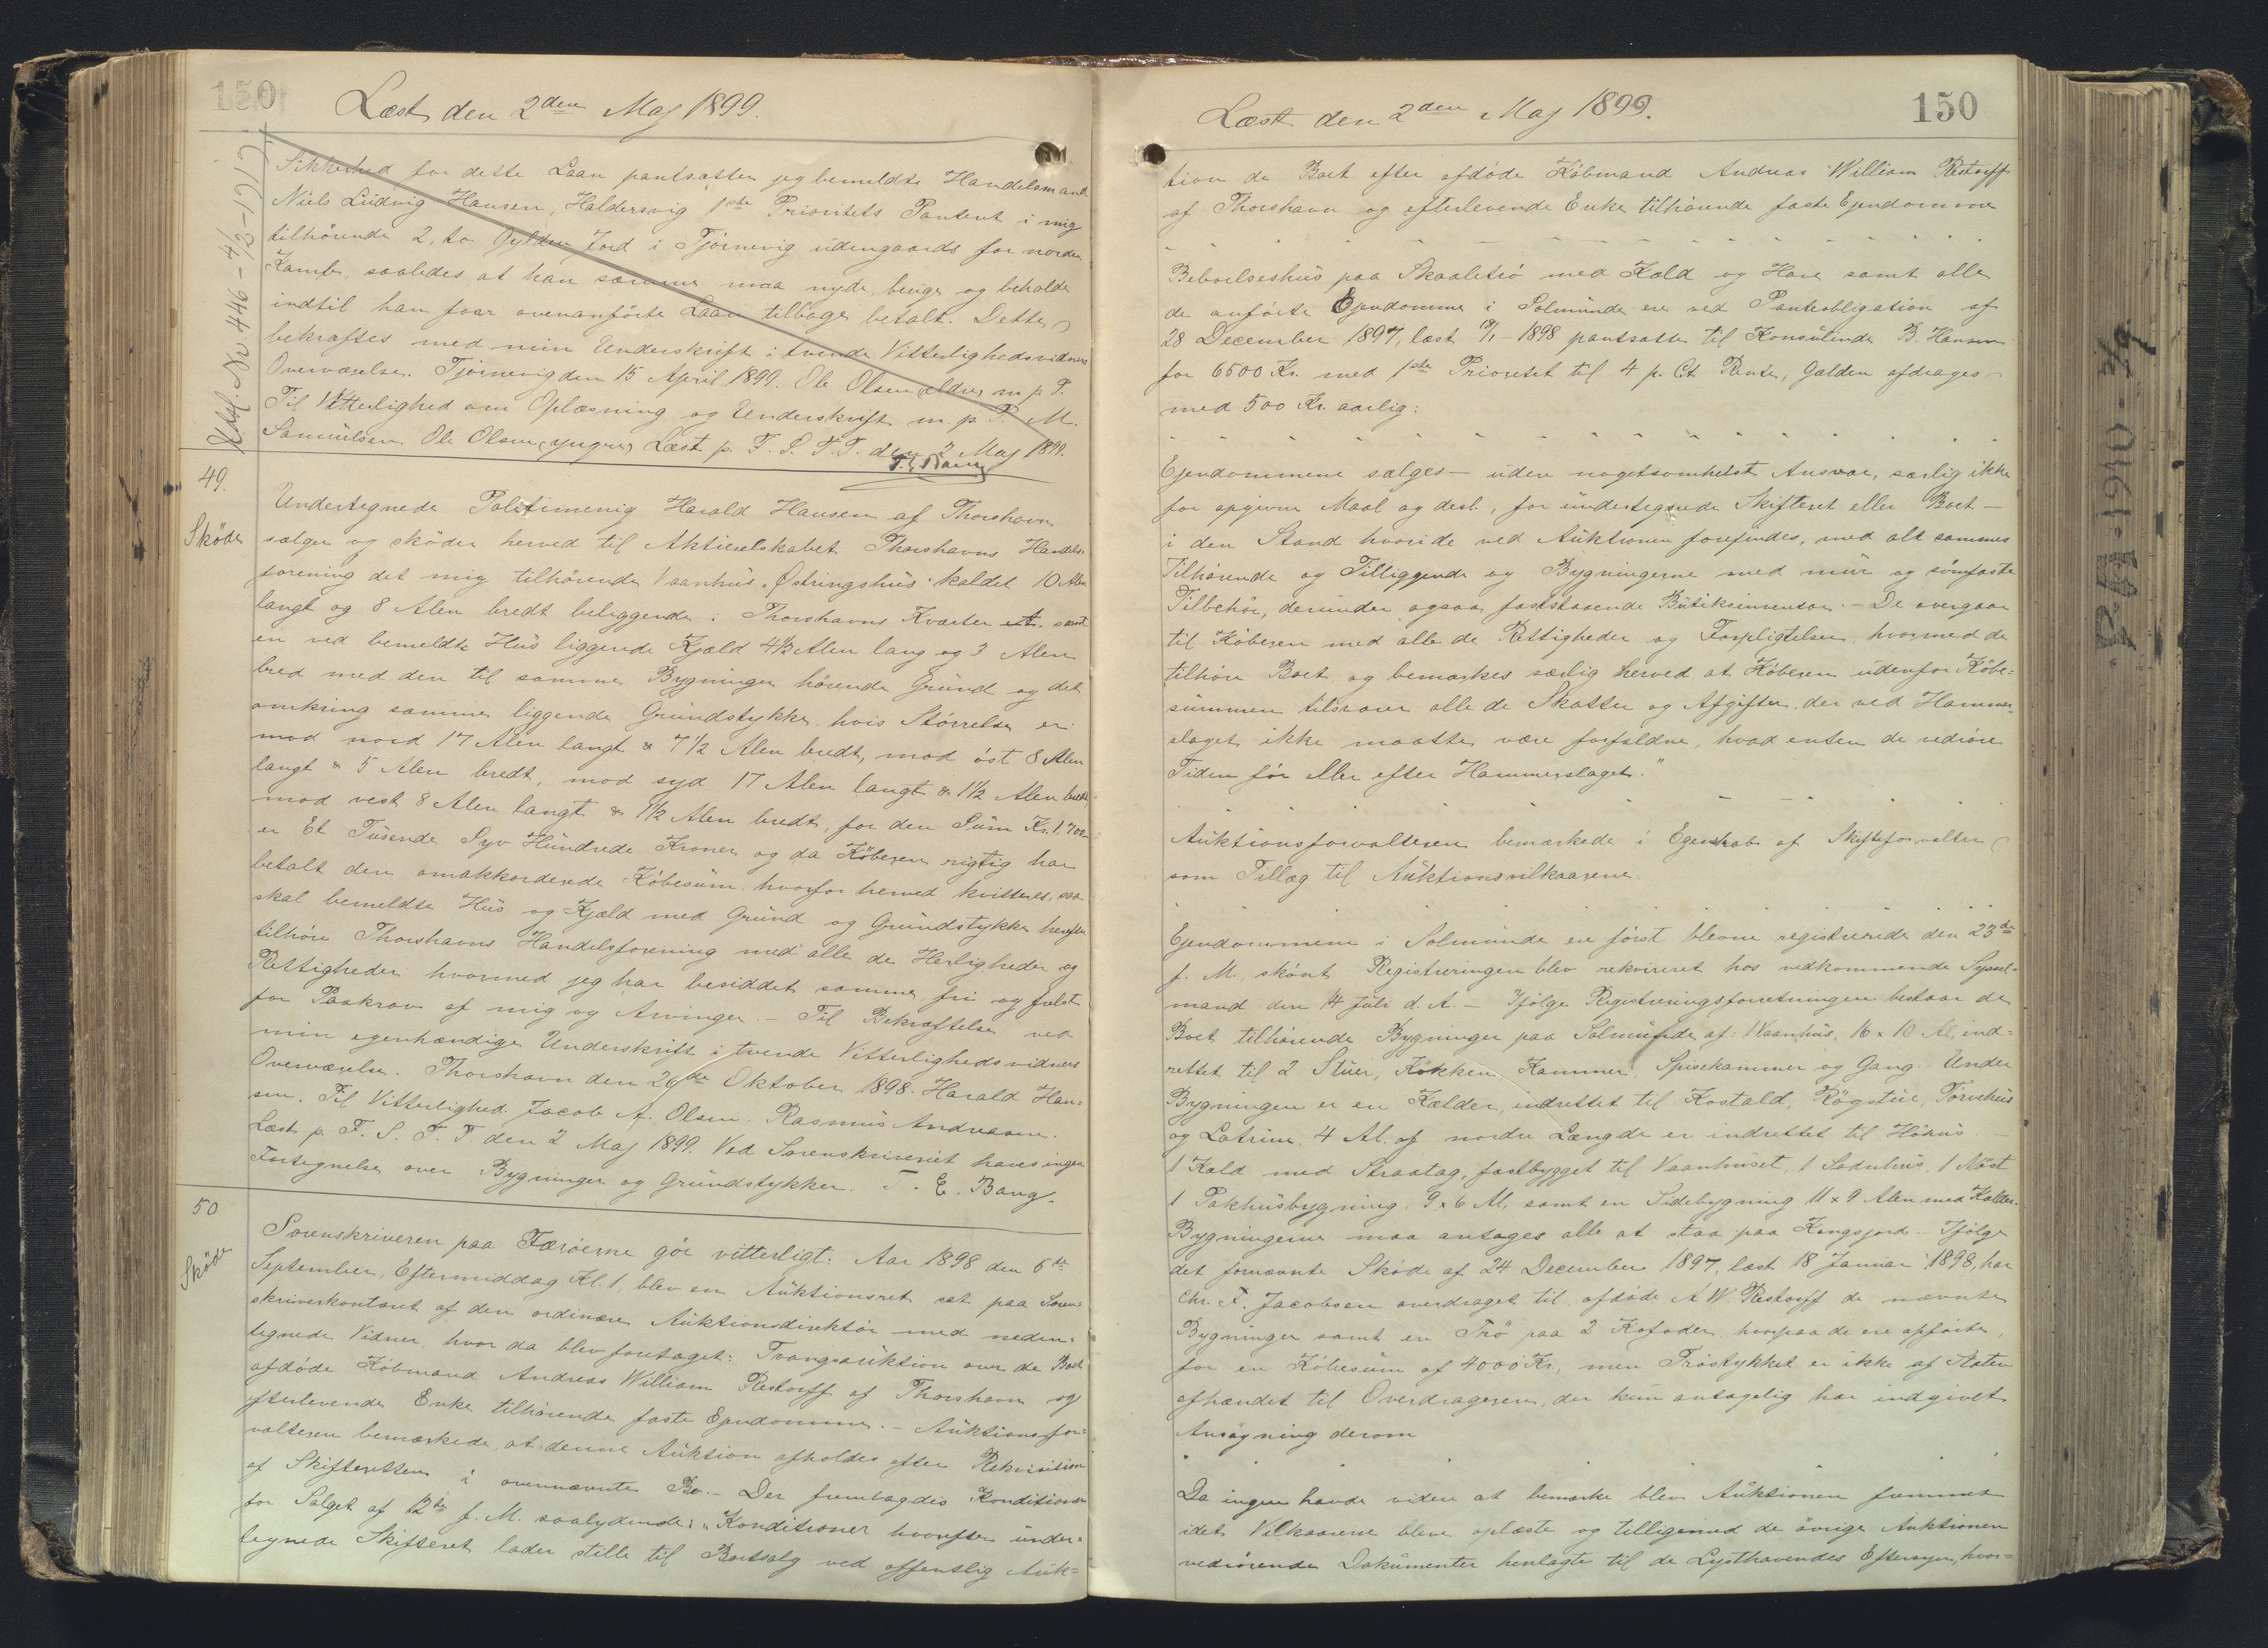 150
Læst den 2den Maj 1899.
Udsl. Nr. 446 - 4/3-1917
Sikkerhed for dette Laan pantsætter jeg bemeldte Handelsmand
Niels Ludvig Hansen, Haldersvig 1ste Prioritets Panteret i mig
tilhørende 2, to Gylden Jord i Tjørnevig udengaards for norden
Kamb, saaledes at han samme maa nyde, bruge og beholde
indtil han faar ovenanførte Laan tilbage betalt. Dette
bekræftes med min Underskrift i tvende Vitterlighedsvidners
Overværelse. Tjørnevig den 15 April 1899. Ole Olsen ældre m p P.
Til Vitterlighed om Oplæsning og Underskrift m. p. P. M.
Samuelsen. Ole Olsen, yngre, Læst p. F. S. F. T. den 2 Maj 1899.
T. E. Bang
49.
Skøde
Undertegnede Politimenig Harald Hansen af Thorshavn
sælger og skøder herved til Aktieselskabet Thorshavns Handels-
forening det mig tilhørende Vaanhus "Østringshus" kaldet 10 Alen
langt og 8 Alen bredt beliggende i Thorshavns Kvarter samt
en ved bemeldte Hus liggende Kjæld 4½ Alen lang og 3 Alen
bred med den til samme Bygninger hørende Grund og det
omkring samme liggende Grundstykke hvis Størrelse er:
mod nord 17 Alen langt & 7½ Alen bredt, mod øst 8 Alen
langt & 5 Alen bredt, mod syd 17 Alen langt & 1½ Alen bredt
mod vest 8 Alen langt & 1½ Alen bredt, for den Sum Kr. 1,700
er Et Tusende Syv Hundrede Kroner og da Køberen rigtig har
betalt den omakkorderede Købesum hvorfor herved kvitteres, saa
skal bemeldte Hus og Kjæld med Grund og Grundstykke herefter
tilhøre Thorshavns Handelsforening med alle de Herligheder og
Rettigheder hvormed jeg har besiddet samme, fri og frelst
for Paakrav af mig og Arvinger. - Til Bekræftelse ved
min egenhændige Underskrift i tvende Vitterlighedsvidners
Overværelse. Thorshavn den 26de Oktober 1898. Harald Han-
sen. Til Vitterlighed. Jacob A. Olsen. Rasmus Andreasen.
Læst p. F. S. F. T. den 2 Maj 1899. Ved Sorenskriveriet haves ingen
Fortegnelse over Bygninger og Grundstykker. T. E. Bang.
50
Skøde
Sorenskriveren paa Færøerne gør vitterligt: Aar 1898 den 6te
September, Eftermiddag Kl. 1, blev en Auktionsret sat paa Soren-
skriverkontoret af den ordinære Auktionsdirektør med neden-
tegnede Vidner, hvor da blev foretaget: Tvangsauktion over de Boet
afdøde Købmand Andreas William Restorff af Thorshavn og
efterlevende Enke tilhørende faste Ejendomme. - Auktionsfor-
valteren bemærkede, at denne Auktion afholdes efter Rekvisition
af Skifteretten i ovennævnte Bo. - Der fremlagdes Konditioner
for Salget af 12te f. M. saalydende: "Konditioner hvorefter under-
tegnede Skifteret lader stille til Bortsalg ved offentlig Auk-
Læst den 2den Maj 1899.
150
tion de Boet efter afdøde Købmand Andreas William Restorff
af Thorshavn og efterlevende Enke tilhørende faste Ejendomme
Beboelseshus paa Skaaletrø med Kæld og Have samt alle
de anførte Ejendomme i Solmunde ere ved Panteobligation af
28 December 1897, læst 18/1-1898 pantsatte til Konsulinde B. Hansen
for 6500 Kr. med 1ste Prioritet til 4 p. Ct Rente, Gælden afdrages
med 500 Kr. aarlig:
Ejendommene sælges - uden nogetsomhelst Ansvar, særlig ikke
for opgivne Maal og desl., for undertegnede Skifteret eller Boet -
i den Stand hvori de ved Auktionen forefindes, med alt sammes
Tilhørende og Tilliggende og Bygningerne med mur og sømfaste
Tilbehør, derunder ogsaa faststaaende Butiksinventar. - De overgaar
til Køberen med alle de Rettigheder og Forpligtelser, hvormed de
tilhøre Boet og bemærkes særlig herved at Køberen udenfor Købe-
summen tilsvarer alle de Skatter og Afgifter, der ved Hammer-
slaget ikke maatte være forfaldne, hvad enten de vedrøre
Tiden før eller efter Hammerslaget."
Auktionsforvalteren bemærkede i Egenskab af Skifteforvalter
som Tillæg til Auktionsvilkaarene.
Ejendommene i Solmunde ere først blevne registrerede den 23de
f. M. skønt Registreringen blev rekvireret hos vedkommende Syssel-
mand den 14 Juli d. A. - Ifølge Registreringsforretningen bestaar de
Boet tilhørende Bygninger paa Solmunde af: 1 Vaanhus, 16 x 10 Al, ind-
rettet til 2 Stuer, Køkken, Kammer, Spisekammer og Gang - Under
Bygningen er en Kælder, indrettet til Kostald, Røgstue, Tørvehus
og Latrin. 4 Al. af nordre Længde er indrettet til Høhus. -
1 Kæld med Straatag, fastbygget til Vaanhuset, 1 Sodnhus, 1 Nøst
1 Pakhusbygning, 9 x 6 Al, samt en Sidebygning 11 x 9 Alen med Kælder.
Bygningerne maa antages alle at staa paa Kongsjord - Ifølge
det fornævnte Skøde af 24 December 1897, læst 18 Januar 1898, har
Chr. F. Jacobsen overdraget til afdøde A W. Restorff de nævnte
Bygninger samt en Trø paa 2 Kofoder, hvorpaa de ere opførte,
for en Købesum af 4000 Kr, men Trøstykket er ikke af Staten
afhændet til Overdrageren, der kun antagelig har indgivet
Ansøgning derom
Da ingen havde videre at bemærke blev Auktionen fremmet
idet Vilkaarene bleve oplæste og tilligemed de øvrige Auktionen
vedrørende Dokumenter henlagte til de Lysthavendes Eftersyn, hvor-